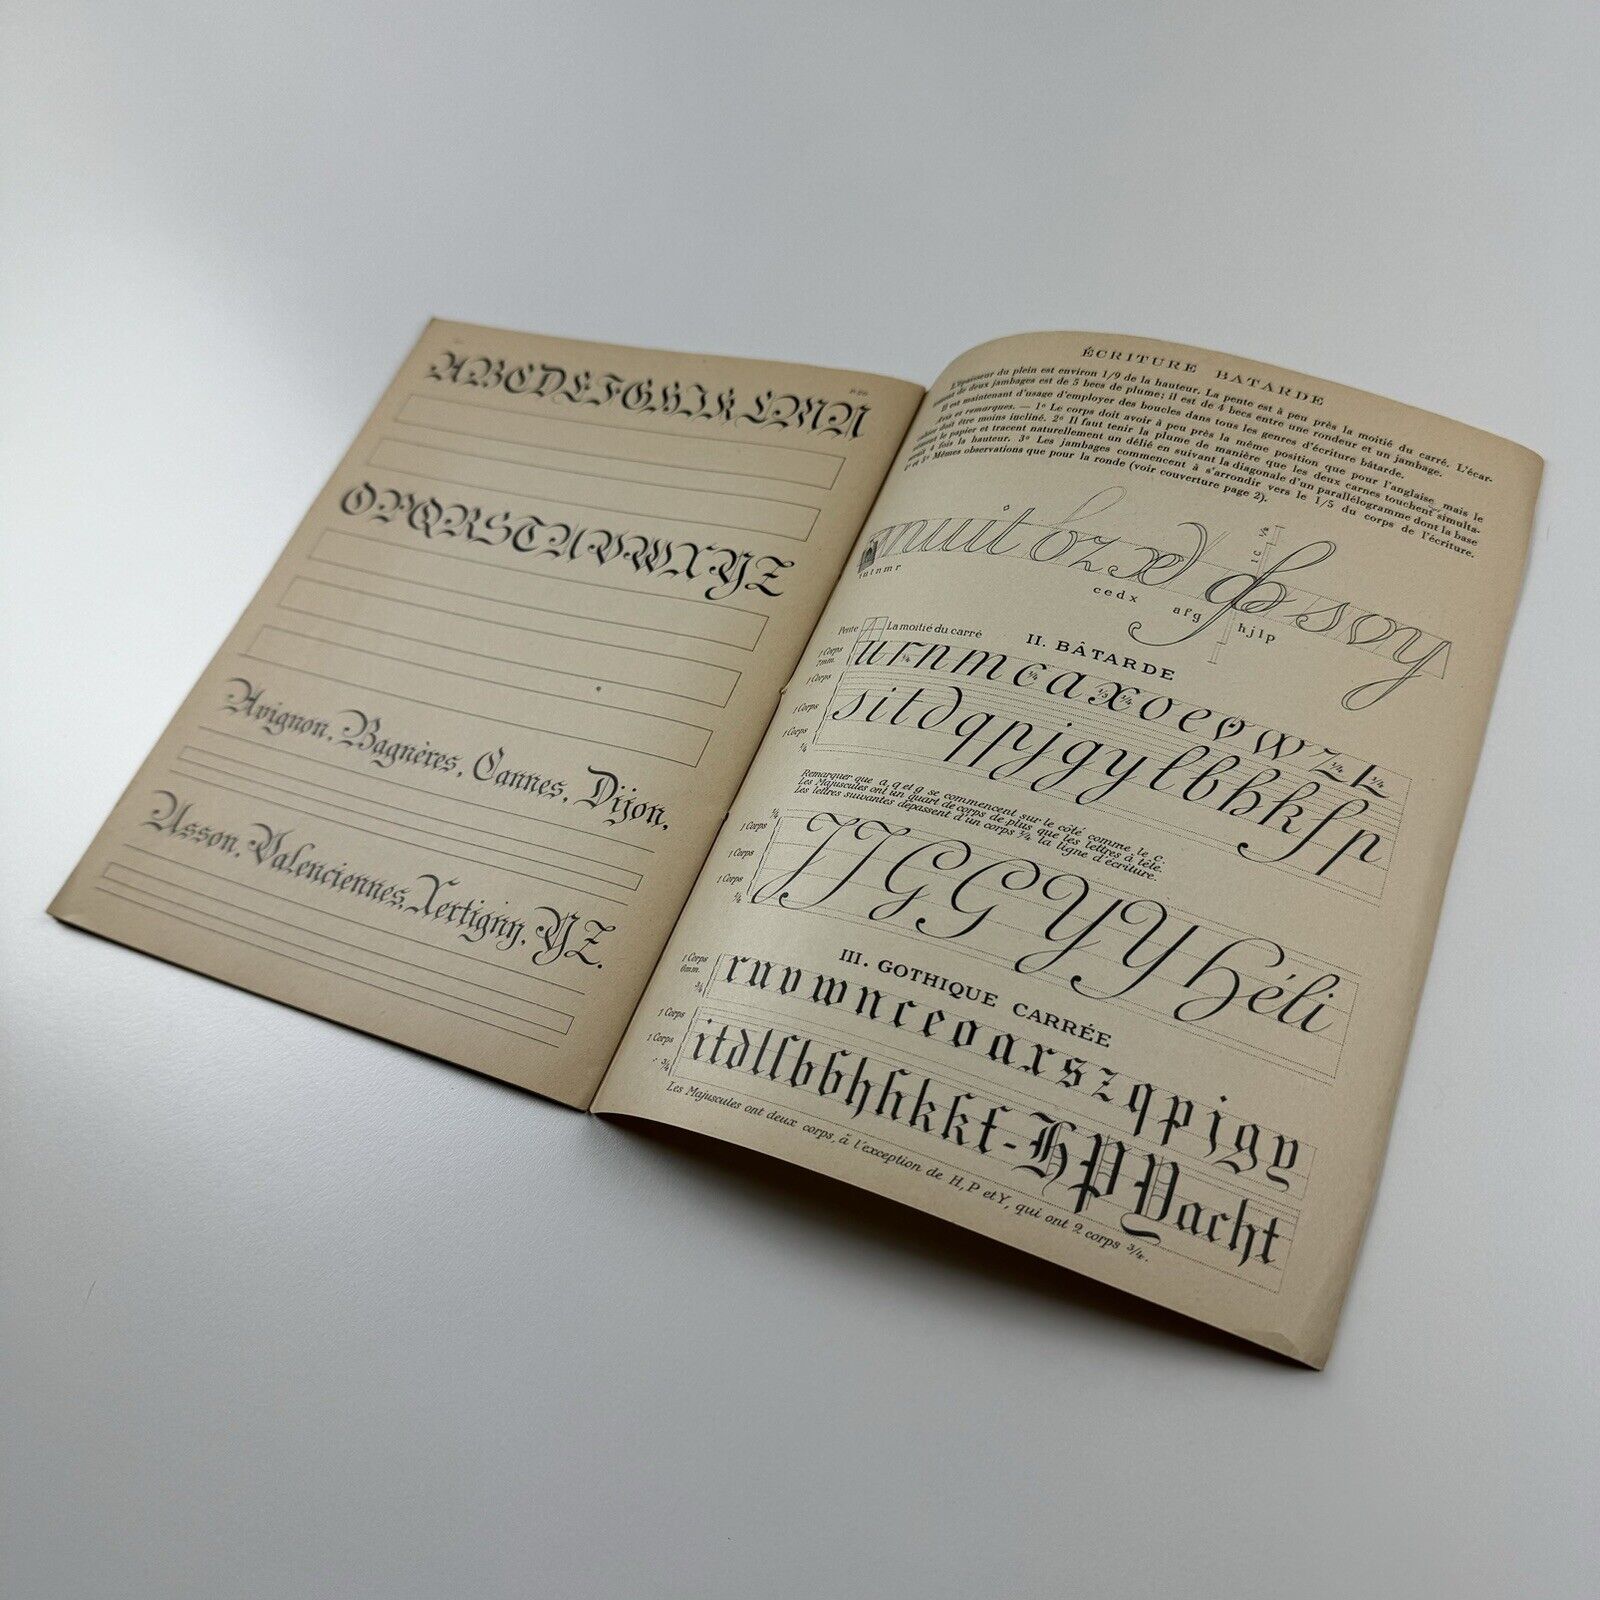 ABCDEFGHIJKLMN
OPQRSTUVWXYZ
Avignon, Bagnères, Cannes, Dijon,
Usson, Valenciennes, Xertigny, YZ.
ÉCRITURE BATARDE
L'épaisseur du plein est environ 1/9 de la hauteur. La pente est à peu près la moitié du carré. L'écar-
tement de deux jambages est de 5 becs de plume; il est de 4 becs entre une rondeur et un jambage.
Il est maintenant d'usage d'employer des boucles dans tous les genres d'écriture bâtarde.
et remarques. — 1º Le corps doit avoir à peu près la même position que pour l'anglaise, mais le
cahier doit être moins incliné. 2º Il faut tenir la plume de manière que les deux carnes touchent simulta-
nément le papier et tracent naturellement un délié en suivant la diagonale d'un parallélogramme dont la base
4 fois la hauteur. 3º Les jambages commencent à s'arrondir vers le 1/5 du corps de l'écriture.
4º et 5º Mêmes observations que pour la ronde (voir couverture page 2).
nuit
soy
cedx
afg
hjlp
1 C
1/4
II. BÂTARDE
Pente
La moitié du carré
1 Corps
7mm.
urnmcaxoeowz
1 Corps
1 Corps
1 Corps
1/4
sitdqpjgylbhkfp
Remarquer que a, q et g se commencent sur le côté comme le c.
Les Majuscules ont un quart de corps de plus que les lettres à tête.
Les lettres suivantes dépassent d'un corps 1/4 la ligne d'écriture.
1/4
1 Corps
1 Corps
1 Corps
1/4
JJGGYYhéli
III. GOTHIQUE CARRÉE
1 Corps
6mm.
3/4
ruvwnceoarszqpjgy
1 Corps
1 Corps
3/4
Yacht
Les Majuscules ont deux corps, à l'exception de H, P et Y, qui ont 2 corps 3/4.